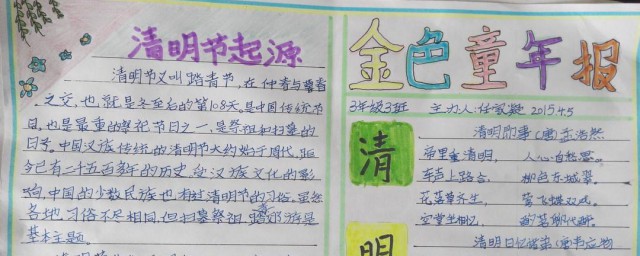 清明节起源
清明节又叫踏青节,在仲春与暮春
之交,也就是冬至后的第108天,是中国传统节
日,也是最重要的祭祀节日之一,是祭祖和扫墓的
日子,中国汉族传统的清明节大约始于周代,距
今已有二千五百多年的历史,受汉族文化的影
响,中国的少数民族也有过清明节的习俗,虽然
各地习俗不尽相同,但扫墓祭祖,踏郊游是
基本主题。
金色童年报
3年级3班 主办人:任 2015.4.5
清
明
清明即事(唐)孟浩然
帝里重清明, 人心自愁思。
车声上路合, 柳色东城翠。
花落草齐生, 莺飞蝶双戏。
空堂坐相忆, 酌茗聊代醉。
清明日